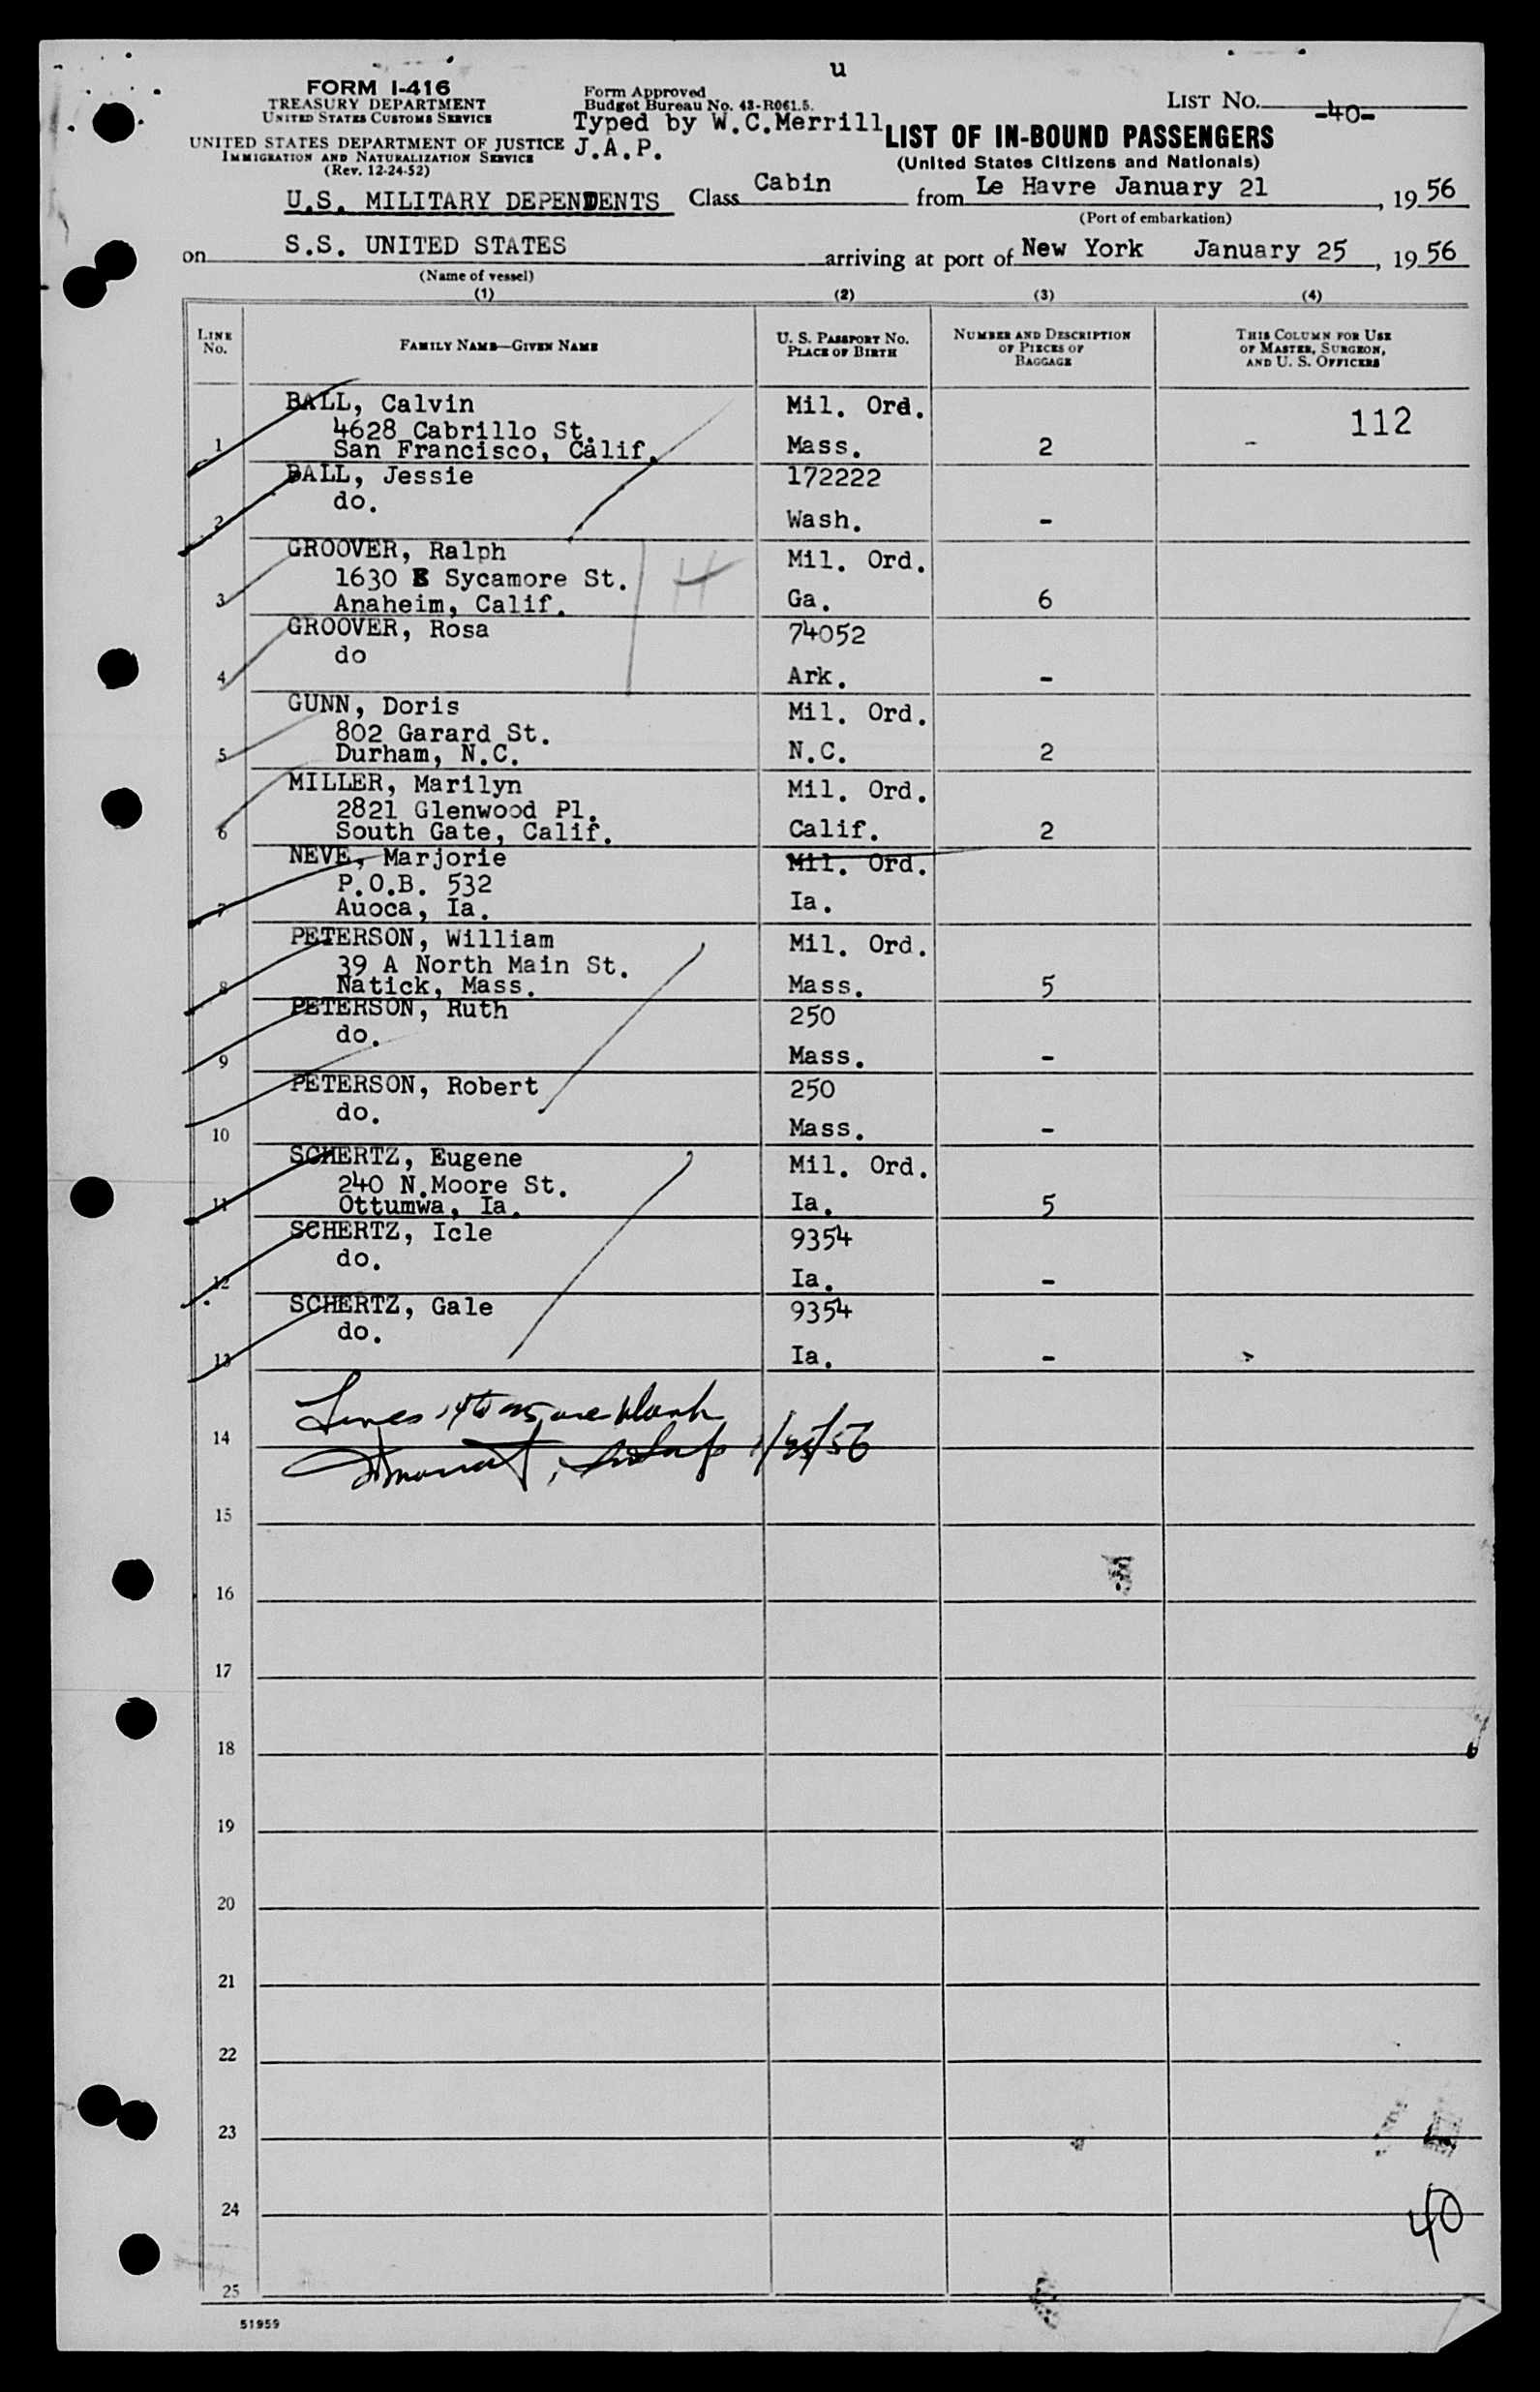 u
FORM I-416
TREASURY DEPARTMENT
UNITED STATES CUSTOMS SERVICE
UNITED STATES DEPARTMENT OF JUSTICE
IMMIGRATION AND NATURALIZATION SERVICE
(Rev. 12-24-52)
Form Approved
Budget Bureau No. 43-R061.5.
Typed by W.C.Merrill
J.A.P.
LIST NO. -40-
LIST OF IN-BOUND PASSENGERS
(United States Citizens and Nationals)
U.S. MILITARY DEPENDENTS Class Cabin from Le Havre January 21, 1956
(Port of embarkation)
on S.S. UNITED STATES arriving at port of New York January 25, 1956
(Name of vessel)
(1) (2) (3) (4)
LINE NO. FAMILY NAME—GIVEN NAME U. S. PASSPORT NO. PLACE OF BIRTH NUMBER AND DESCRIPTION OF PIECES OF BAGGAGE THIS COLUMN FOR USE OF MASTER, SURGEON, AND U. S. OFFICERS
BALL, Calvin Mil. Ord.
4628 Cabrillo St. 112
1 San Francisco, Calif. Mass. 2 -
BALL, Jessie 172222
do.
2 Wash. -
GROOVER, Ralph Mil. Ord.
1630 E Sycamore St. H
3 Anaheim, Calif. Ga. 6
GROOVER, Rosa 74052
do
4 Ark. -
GUNN, Doris Mil. Ord.
802 Garard St.
5 Durham, N.C. N.C. 2
MILLER, Marilyn Mil. Ord.
2821 Glenwood Pl.
6 South Gate, Calif. Calif. 2
NEVE, Marjorie Mil. Ord.
P.O.B. 532
7 Auoca, Ia. Ia.
PETERSON, William Mil. Ord.
39 A North Main St.
8 Natick, Mass. Mass. 5
PETERSON, Ruth 250
do.
9 Mass. -
PETERSON, Robert 250
do.
10 Mass. -
SCHERTZ, Eugene Mil. Ord.
240 N.Moore St.
11 Ottumwa, Ia. Ia. 5
SCHERTZ, Icle 9354
do.
12 Ia. -
SCHERTZ, Gale 9354
do.
13 Ia. -
Lines 14 to 25 are blank
14 1/25/56
15
16
17
18
19
20
21
22
23
24 40
25
51959